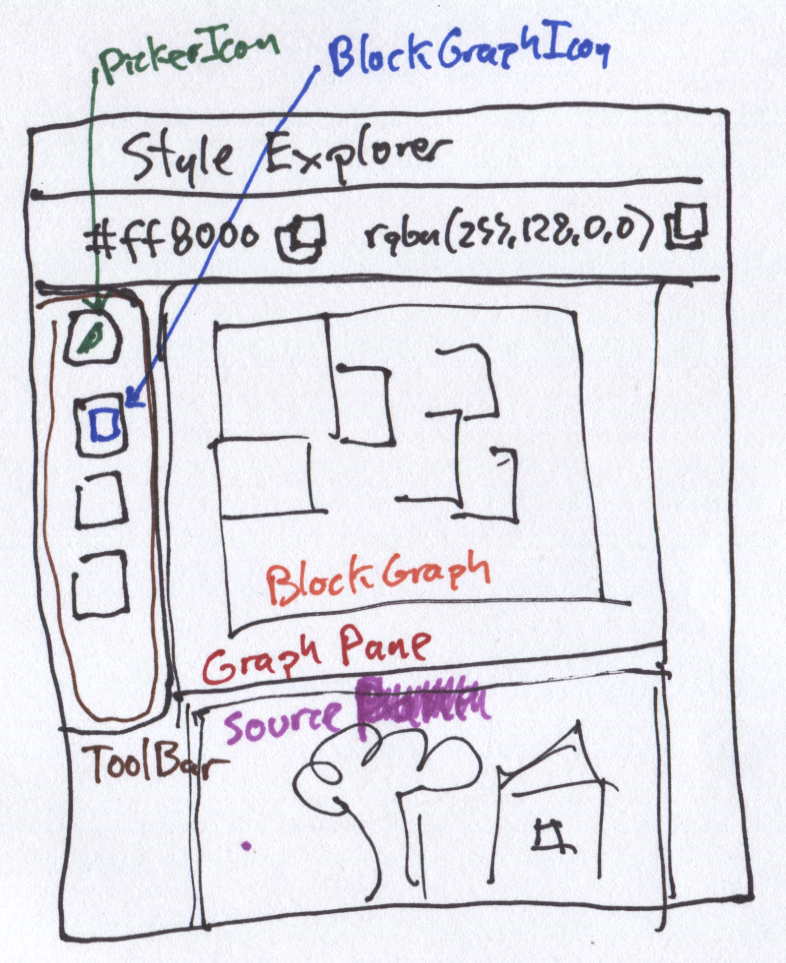 PickerIcon
BlockGraphIcon
Style Explorer
#ff8000 rgba(255,128,0,0)
BlockGraph
Graph Pane
Source
ToolBar